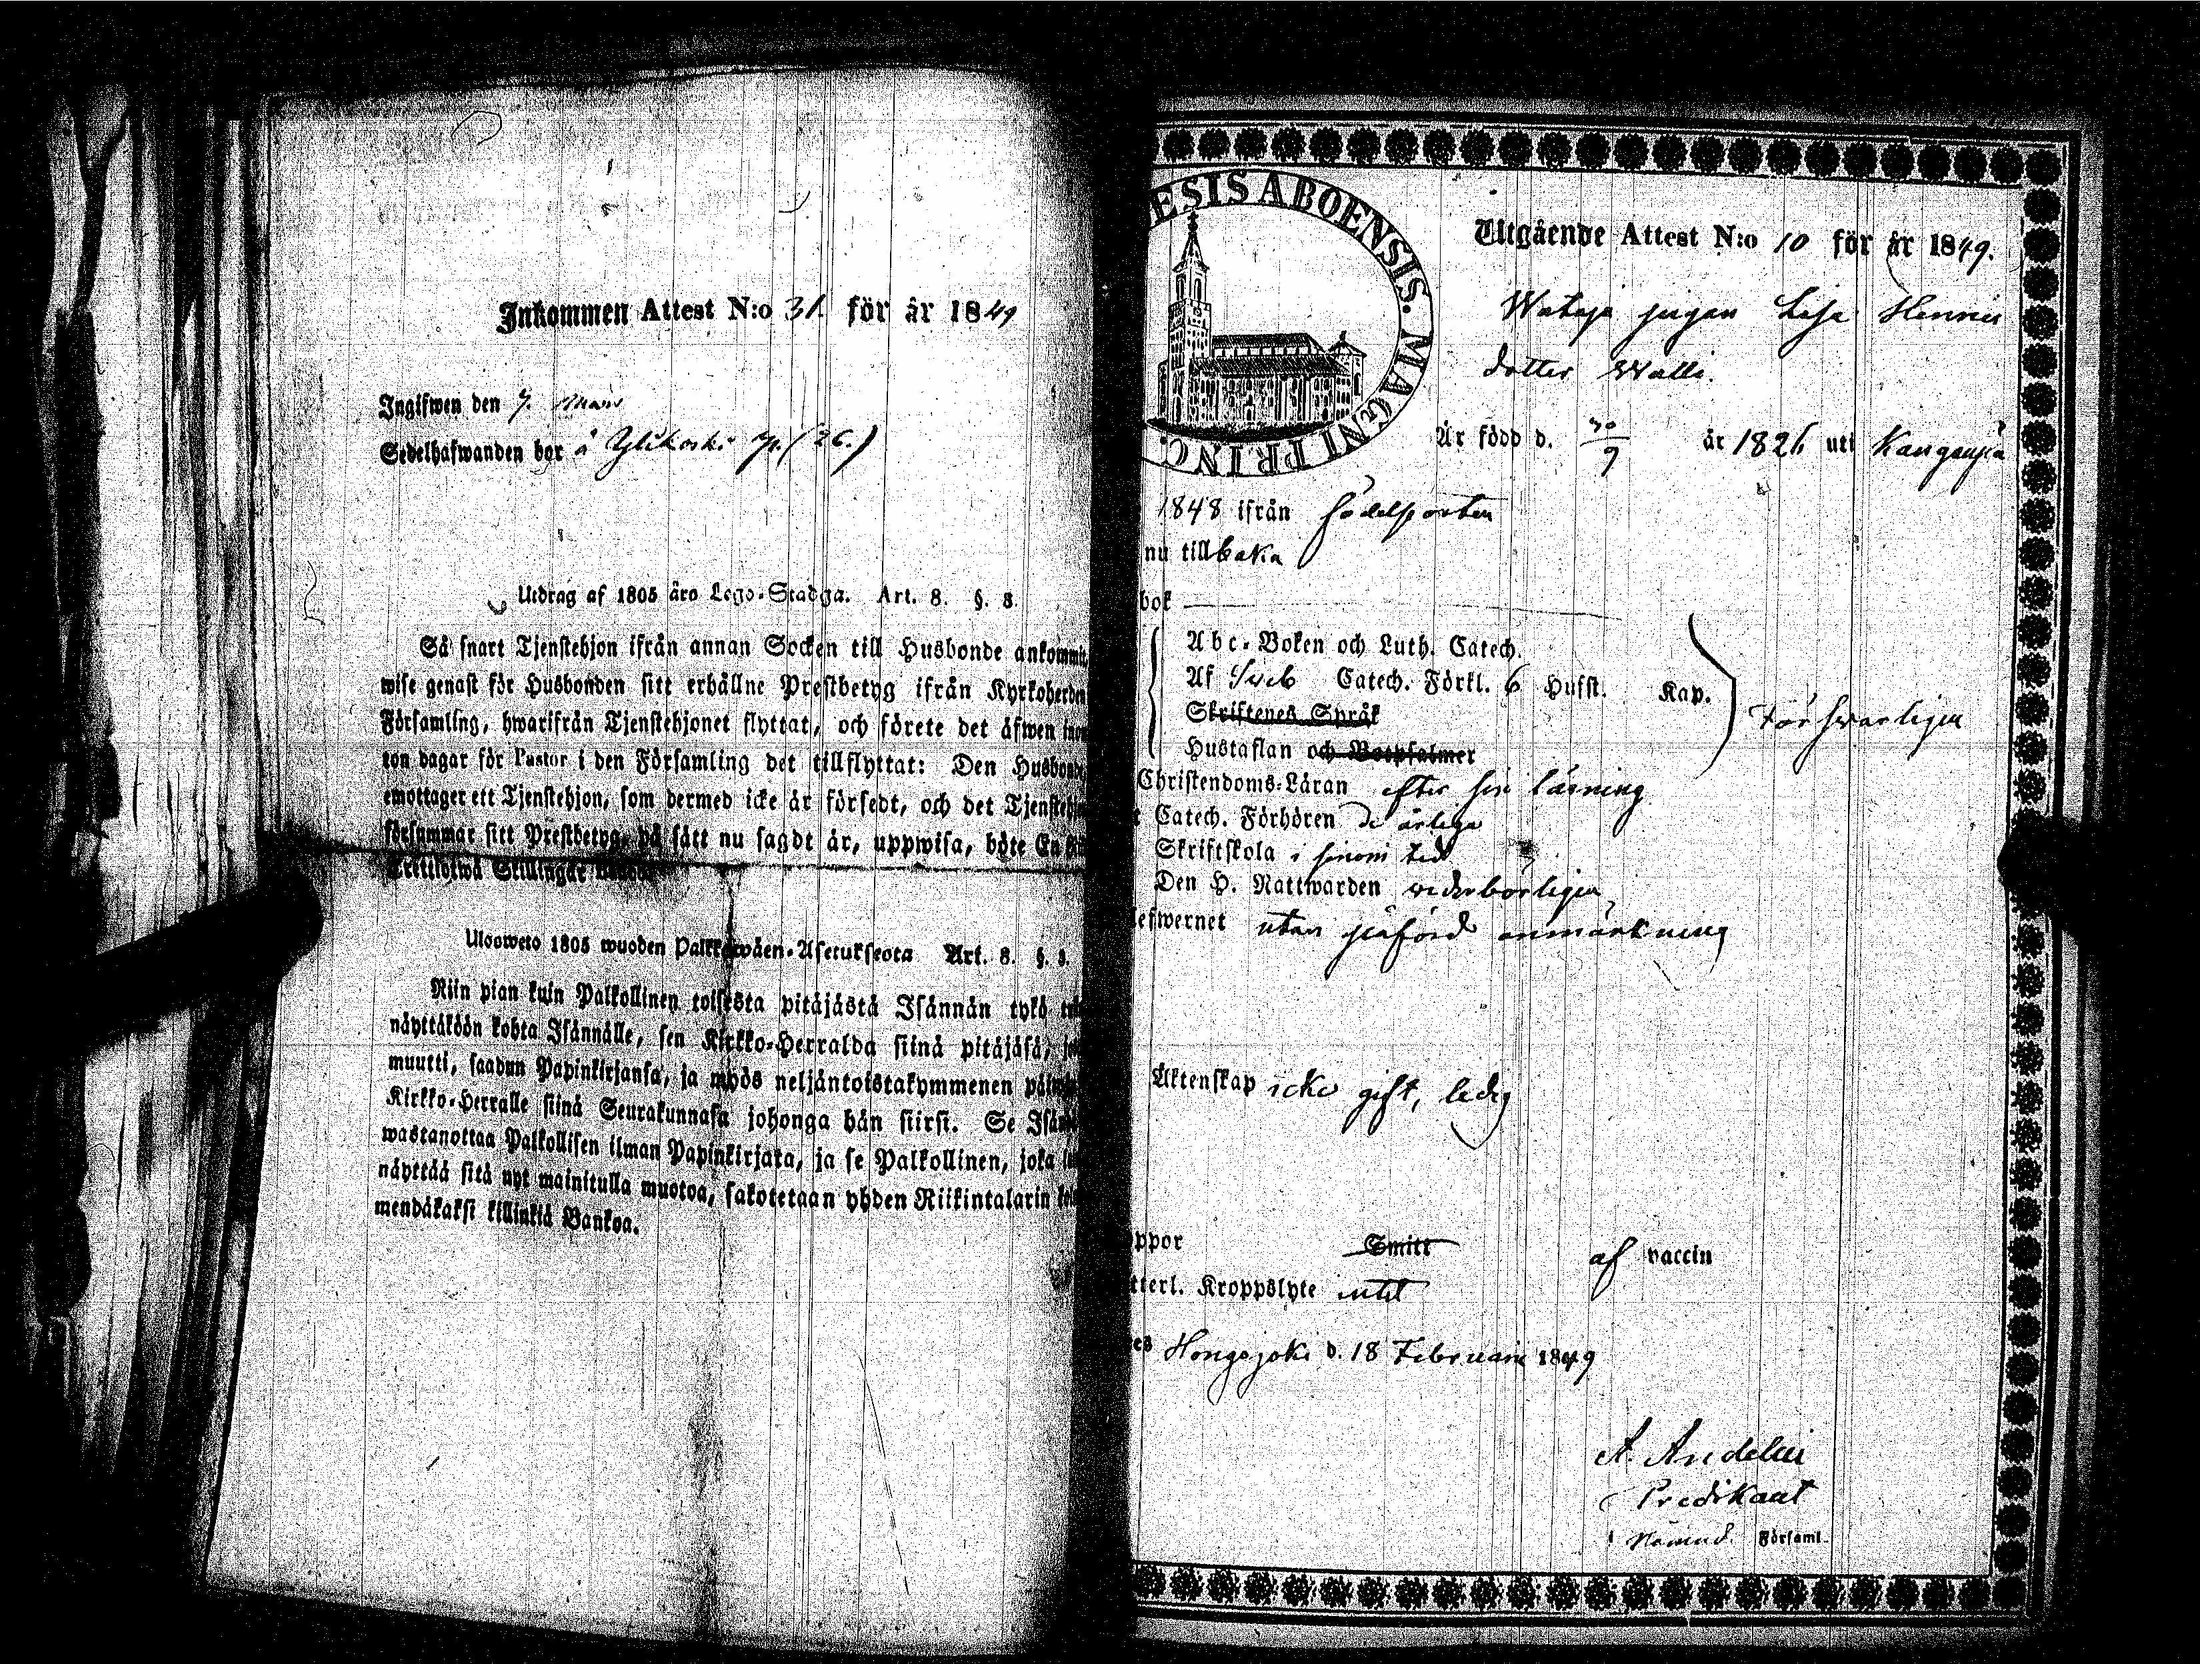 Inkommen Attest N:o 31. för år 1849
Ingifwen den 7. Mars
Sedelhafwanden bor å Ylikoski (26.)
Utdrag af 1805 års Lego-Stadga. Art. 8. §. 8.
Så snart Tjenstehjon ifrån annan Socken till Husbonde ankommit,
wise genast för Husbonden sitt erhållne Prestbetyg ifrån Kyrkoherden
Församling, hwarifrån Tjenstehjonet flyttat, och förete det äfwen
ton dagar för Pastor i den Församling det tillflyttat: Den Husbonde
emottager ett Tjenstehjon, som dermed icke är försedt, och det
försummar sitt Prestbetyg, på sätt nu sagdt är, uppwisa, böte En
Trettiotwå Skillingar
Ulosweto 1805 wuoden Palkkawäen-Asetuksesta Art. 8. §. 8.
Niin pian kuin Palkollinen toisesta pitäjästä Isännän tykö
näyttäköön kohta Isännälle, sen Kirkko-Herralda siinä pitäjäsä,
muutti, saadun Papinkirjansa, ja myös neljäntoistakymmenen
Kirkko-Herralle siinä Seurakunnasa johonga hän siirsi. Se
wastanottaa Palkollisen ilman Papinkirjata, ja se Palkollinen, joka
näyttää sitä nyt mainitulla muotoa, sakotetaan yhden Riikintalarin
mendäkaksi killinkiä Bankoa.
ESIS ABOENSIS. MAGNI PRINC.
Utgående Attest N:o 10 för år 1849.
pigan Lisa Henriks
dotter Walli.
Är född d. 30/9 år 1826 uti Kangasniä
1848 ifrån födelseorten
nu tillbaka
bok
Abc-Boken och Luth. Catech.
Af Sveb Catech. Förkl. 6 Hufst. Kap.
Skriftenes Språk
försvarligen
Hustaflan och Botpsalmer
Christendoms-Läran efter sin läsning
Catech. Förhören de årliga
Skriftskola i sinom tid
Den H. Nattwarden vederbörligen
lefwernet utan påförd anmärkning
Äktenskap icke gift, ledig
ppor Smitt af vaccin
tterl. Kroppslyte intet
Hongojoki d. 18 Februari 1849
A. Andelin
Predikant
Församl.